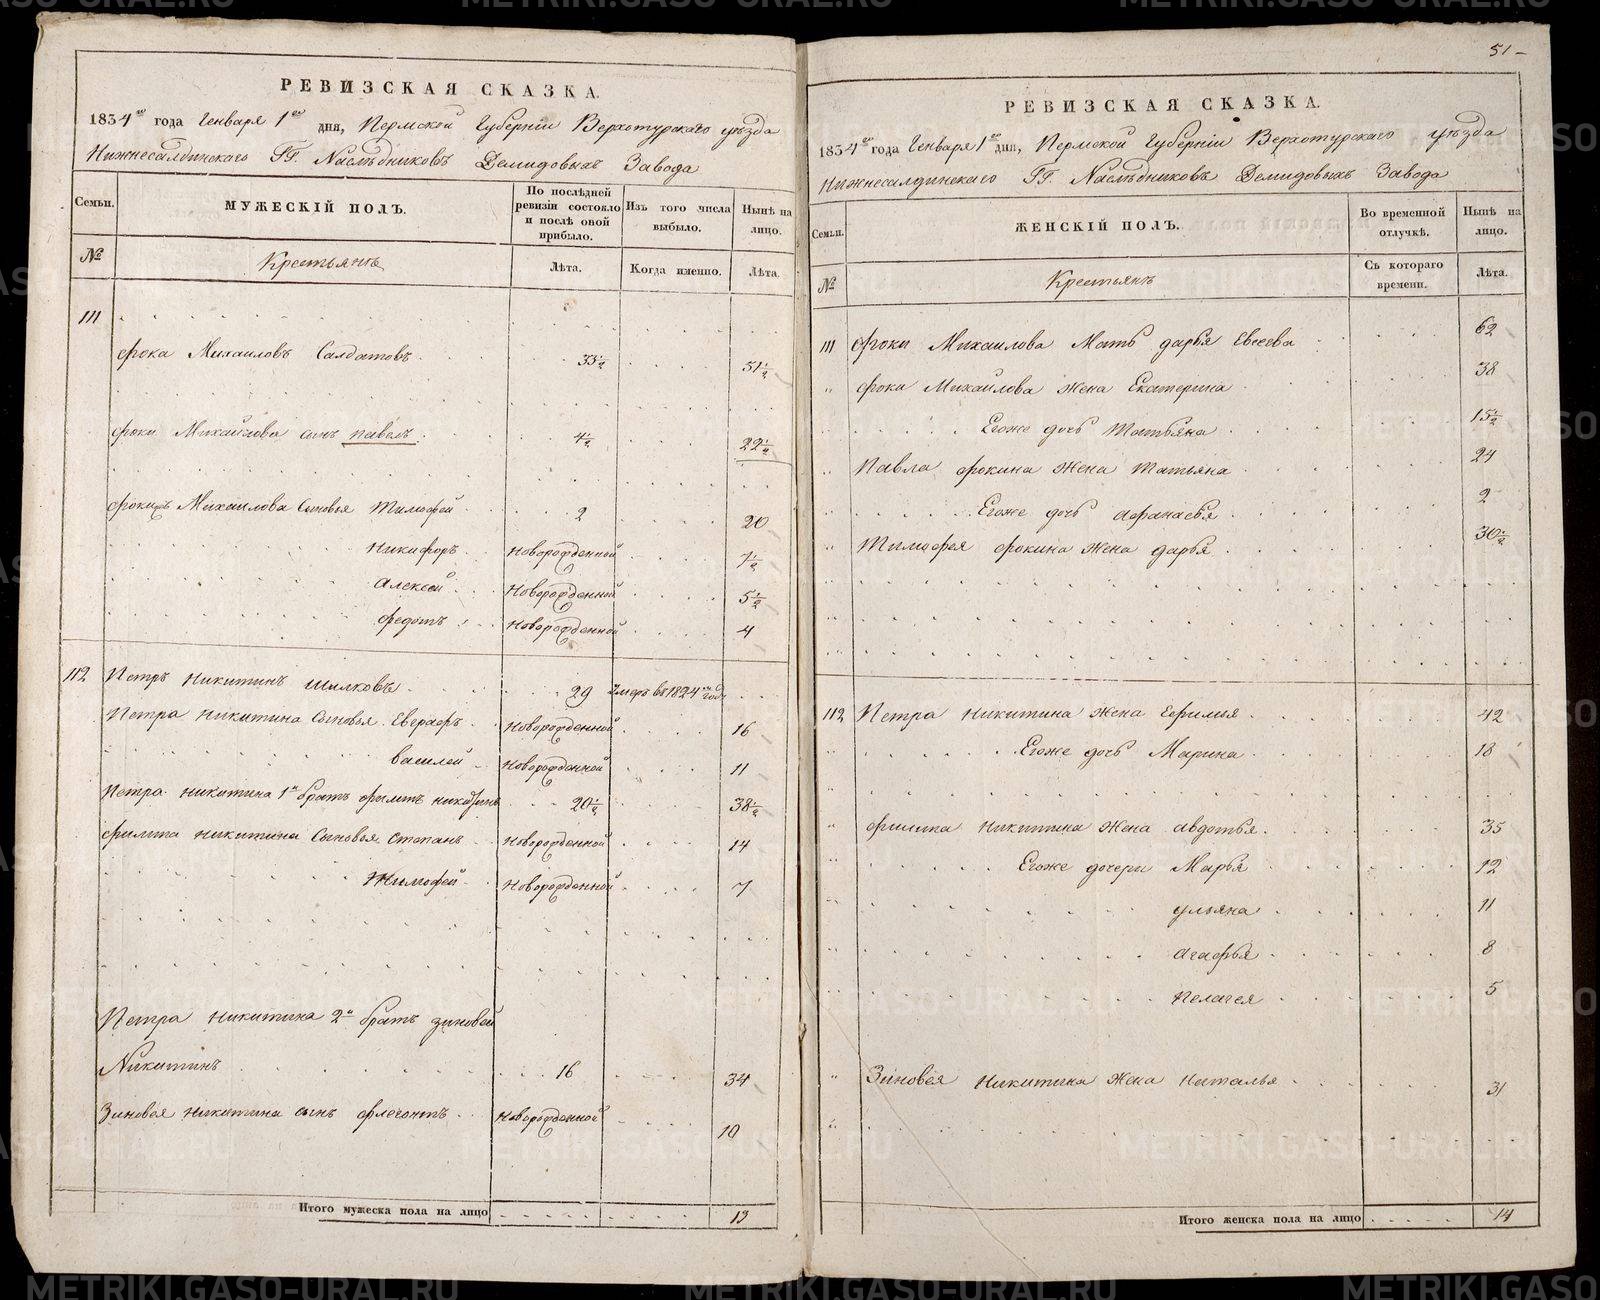 РЕВИЗСКАЯ СКАЗКА.
1834го года Генваря 1го дня, Пермской Губернiи Верхотурскаго уѣзда
Нижнесалдинскаго ГГ. Наслѣдниковъ Демидовыхъ Завода
Семьи.
МУЖЕСКIЙ ПОЛЪ.
По послѣдней ревизiи состояло и послѣ оной прибыло.
Изъ того числа выбыло.
Нынѣ на лицо.
№
Крестьянъ
Лѣта.
Когда именно.
Лѣта.
111
Фока Михаиловъ Салдатовъ 33½ 51½
Фоки Михайлова сынъ Павелъ 4½ 22½
Михаилова Сыновья Тимофей 2 20
Никифоръ Новорожденной 7½
Алексей Новорожденной 5½
Федотъ Новорожденной 4
112 Петръ Никитинъ Шилковъ 29 умеръ въ 1824м году
Петра Никитина Сыновья Евграфъ Новорожденной 16
Василей Новорожденной 11
Петра Никитина 1й братъ Филипъ Никитинъ 20½ 38½
Филипа Никитина Сыновья Степанъ Новорожденной 14
Тимофей Новорожденной 7
Петра Никитина 2й братъ Зиновей
Никитинъ 16 34
Зиновея Никитина сынъ Флегонтъ Новорожденной 10
Итого мужеска пола на лицо 13
51
РЕВИЗСКАЯ СКАЗКА.
1834го года Генваря 1го дня, Пермской Губернiи Верхотурскаго уѣзда
Нижнесалдинскаго ГГ. Наслѣдниковъ Демидовыхъ Завода
Семьи.
ЖЕНСКIЙ ПОЛЪ.
Во временной отлучкѣ.
Нынѣ на лицо.
№
Крестьянъ
Съ котораго времени.
Лѣта.
111 Фоки Михаилова Мать Дарья Евсеева 62
Фоки Михайлова жена Екатерина 38
Егоже дочь Татьяна 15½
Павла Фокина жена Татьяна 24
Егоже дочь Афанасья 2
Тимофея Фокина жена Дарья 30½
112 Петра Никитина жена Ефимья 42
Егоже дочь Марина 18
Филипа Никитина жена Авдотья 35
Егоже дочери Марья 12
Ульяна 11
Агафья 8
Пелагея 5
Зиновея Никитина жена Наталья 31
Итого женска пола на лицо 14
METRIKI.GASO-URAL.RU